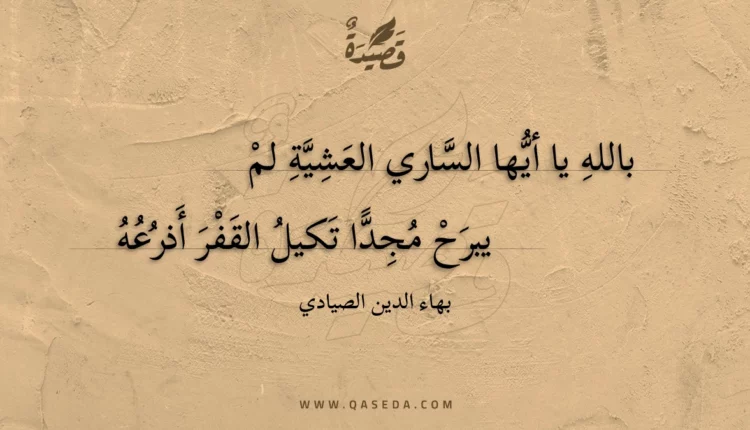 قَصِيدَةٌ
باللهِ يا أيُّها السَّاري العَشِيَّةِ لمْ
يبرَحْ مُجِدًّا تَكيلُ القَفْرَ أَذرُعُهُ
بهاء الدين الصيادي
WWW.QASEDA.COM